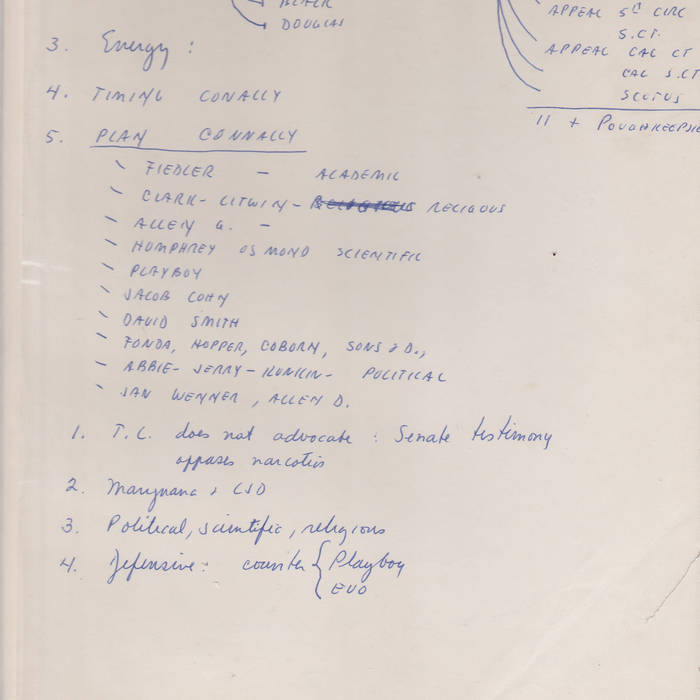 BLACK
DOUGLAS
APPEAL 5th CIRC
S.CT.
APPEAL CAL CT
CAL S.CT
SCOTUS
11 + POUGHKEEPSIE
3. Energy:
4. TIMING CONALLY
5. PLAN CONNALLY
- FIEDLER - ACADEMIC
- CLARK - LITWIN - RELIGOUS
- ALLEN G. -
- HUMPHREY OSMOND SCIENTIFIC
- PLAYBOY
- JACOB COHN
- DAVID SMITH
- FONDA, HOPPER, COBORN, SONS & D.,
- ABBIE - JERRY - KUNKIN - POLITICAL
- JAN WENNER, ALLEN D.
1. T.L. does not advocate: Senate testimony
opposes narcotics
2. Marijuana + LSD
3. Political, scientific, religious
4. Defensive: counter { Playboy
EVO